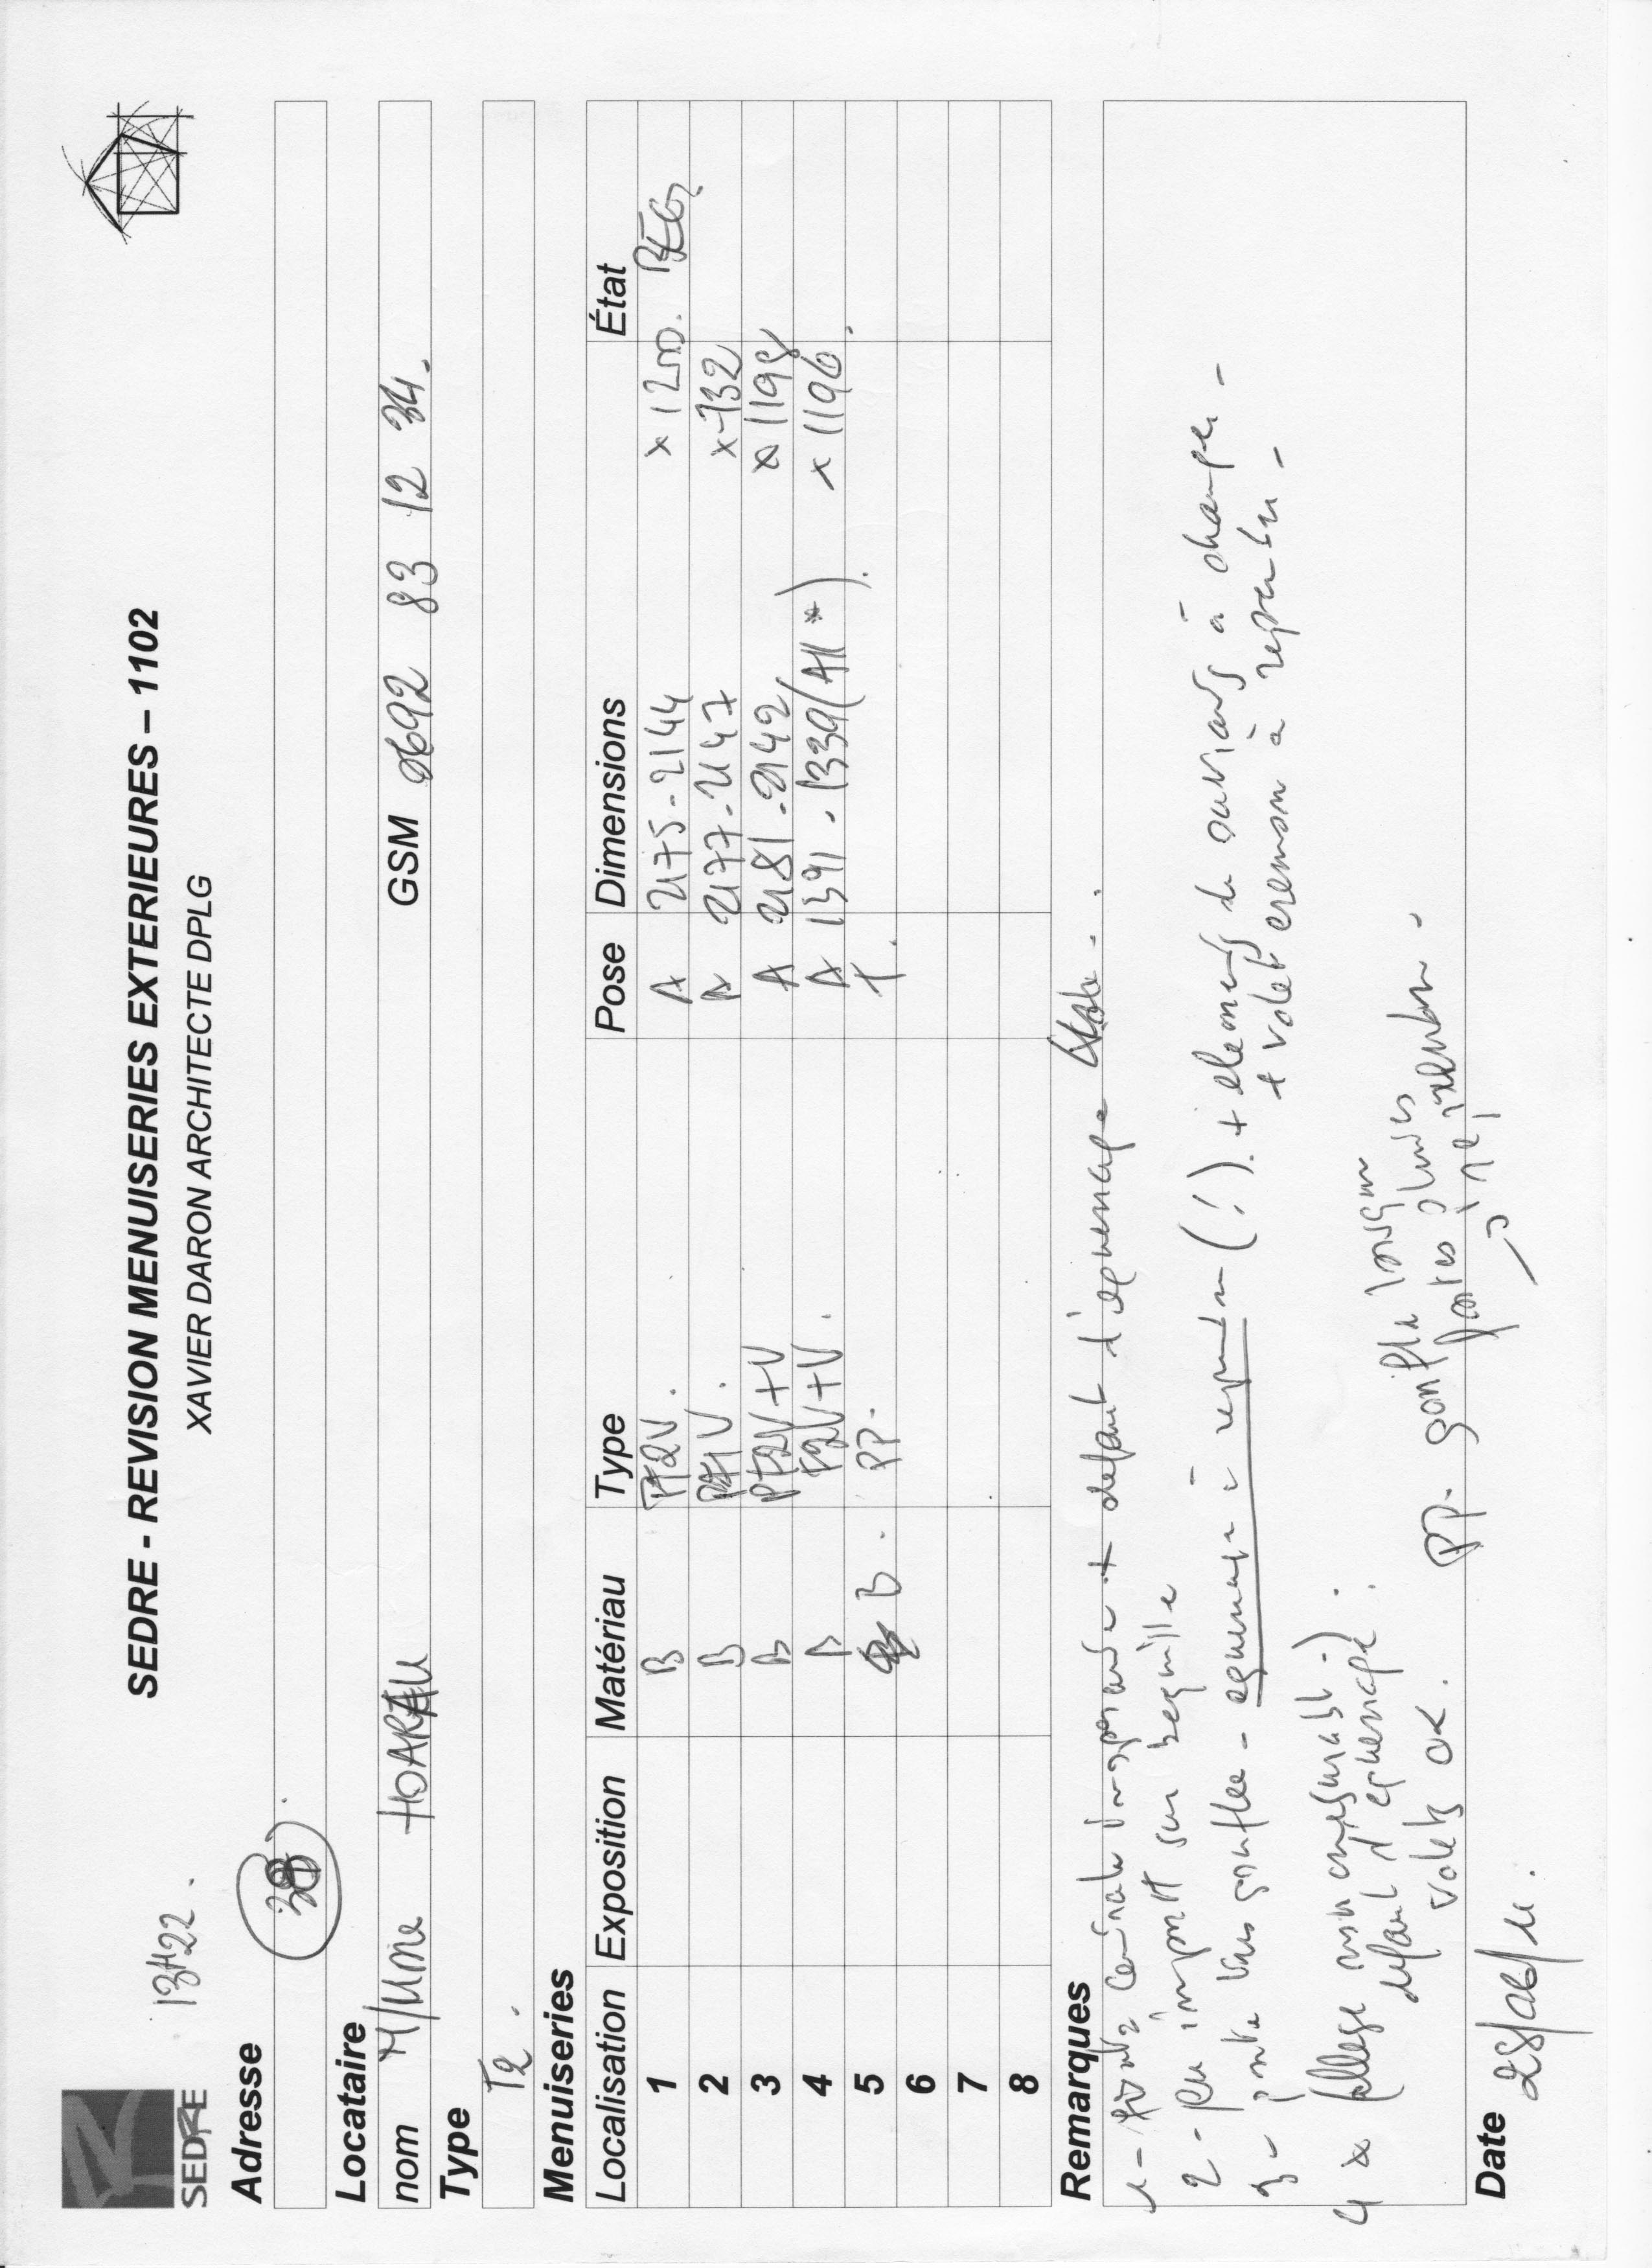 SEDRE
SEDRE - REVISION MENUISERIES EXTERIEURES – 1102
XAVIER DARON ARCHITECTE DPLG
13H22.
Adresse
38
Locataire
nom M/Mme HOARAU GSM 0692 83 12 34.
Type
T2.
Menuiseries
Localisation Exposition Matériau Type Pose Dimensions État
1 B PF2V. A 2175-2144 x 1200. BEG
2 B PF1V. A 2177-2147 x 732
3 B PF2V+V A 2181-2142 x 1198
4 B F2V+V. A 1391-1339 (All *). x 1196.
5 B. PP. T.
6
7
8
Remarques
1- joint central + défaut d'équerrage
2- peu import sur béquille
3- porte gonflée - équerrage à reprendre (!). + éléments de ouvrants à changer -
+ volet cremon à reprendre -
4 * allège non mesurable -)
défaut d'équerrage.
volets OK.
PP. gonfle lorsque
portes
Date 28/06/11.